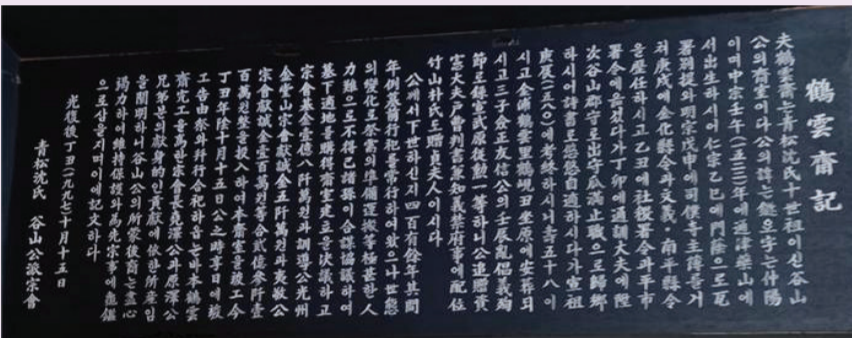 鶴雲齋記
夫鶴雲齋는靑松沈氏十世祖이신谷山
公의齋室이다公의諱는 字는什陽
이며中宗壬午 年에通津藥山에
서出生하시어仁宗乙巳에門蔭으로瓦
署別提와明宗戊申에司僕寺主簿를거
처庚戌에金化縣令과文義·南平縣令
을歷任하시고乙丑에社稷署令과平市
署令에옴겼다가丁卯에通訓大夫에陞
次谷山郡守로出守瓜滿止職으로歸鄕
하시어讀書로悠悠自適하시다가宣祖
庚辰(一五八〇)에考終하시니壽五十八이
시고金浦鶴雲里鶴峴丑坐原에安葬되
시고三子僉正友信公의壬辰亂倡義殉
節로錄宣武原從勳一等하니公追贈資
憲大夫戶曹判書兼知義禁府事에配位
竹山朴氏도贈貞夫人이시다
公께서下世하신지四百有餘年其間
年例墓前行祀를常行하여왔으나世態
의變化로祭需의準備運搬等極甚한人
力難으로不得已諸孫이合謀協議하여
墓下適地를購得齋室建立을決議하고
宗會基金壹億八阡萬원과訓導公光州
金堂山宗會獻誠金五阡萬원과夷敬公
宗會獻誠金壹百萬원等合貳億參阡壹
百萬원整을投入하여本齋室을竣工今
丁丑年陰十月十五日公之時享日에竣
工告由祭와幷行合祀하 는바本鶴雲
齋完工을爲한宗會長堯澤公과原澤公
兄弟분의獻身的인貢獻에依한所産임
을闡明하니谷山公의所蒙後裔는盡心
竭力하여維持保護와爲先宗事에龜鑑
으로삼을지며이에記文하다
光復後丁丑(一九九七)十月十五日
靑松沈氏 谷山公派宗會